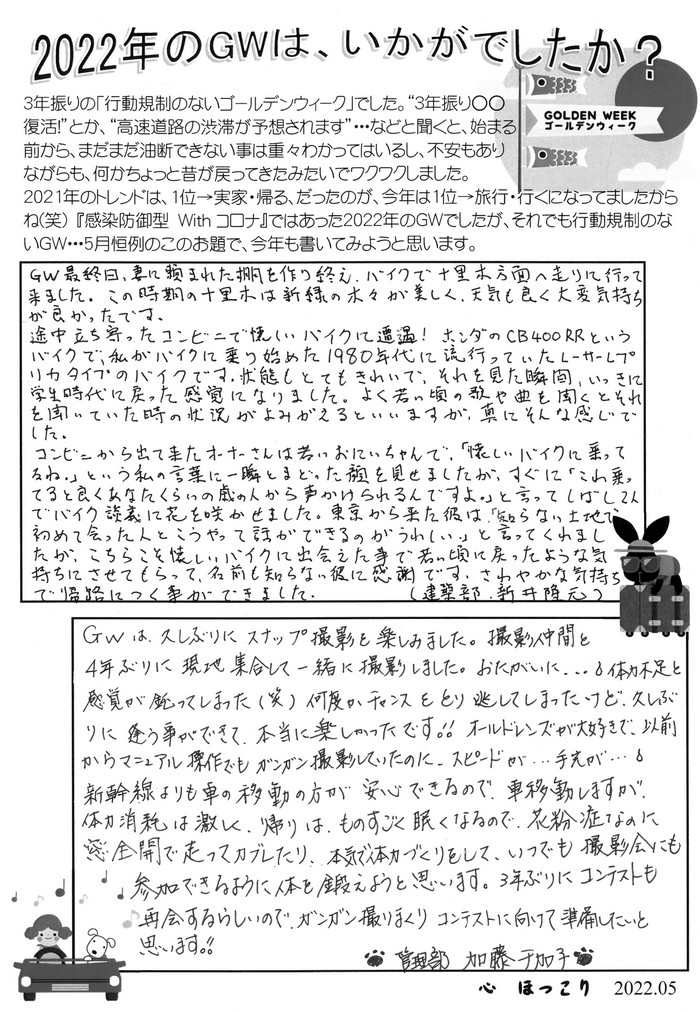 2022年のGWは、いかがでしたか？
GOLDEN WEEK
ゴールデンウィーク
3年振りの「行動規制のないゴールデンウィーク」でした。“3年振り〇〇
復活!”とか、“高速道路の渋滞が予想されます”…などと聞くと、始まる
前から、まだまだ油断できない事は重々わかってはいるし、不安もあり
ながらも、何かちょっと昔が戻ってきたみたいでワクワクしました。
2021年のトレンドは、1位→実家・帰る、だったのが、今年は1位→旅行・行くになってましたから
ね(笑)『感染防御型 With コロナ』ではあった2022年のGWでしたが、それでも行動規制のな
いGW…5月恒例のこのお題で、今年も書いてみようと思います。
GW最終日、妻に頼まれた棚を作り終え、バイクで十里木方面へ走りに行って
来ました。この時期の十里木は新緑の木々が美しく、天気も良く大変気持ち
が良かったです。
途中立ち寄ったコンビニで懐しいバイクに遭遇! ホンダのCB400RRという
バイクで、私がバイクに乗り始めた1980年代に流行っていたレーサーレプ
リカタイプのバイクです。状態もとてもきれいで、それを見た瞬間、いっきに
学生時代に戻った感覚になりました。よく若い頃の歌や曲を聞くとそれ
を聞いていた時の状況がよみがえるといいますが、真にそんな感じで
した。
コンビニから出て来たオーナーさんは若いおにいちゃんで、「懐しいバイクに乗って
るね。」という私の言葉に一瞬とまどった顔を見せましたが、すぐに「これ乗っ
てると良くあなたくらいの歳の人から声かけられるんですよ。」と言ってしばし2人
でバイク談義に花を咲かせました。東京から来た彼は、「知らない土地で
初めて会った人とこうやって話ができるのがうれしい。」と言ってくれまし
たが、こちらこそ懐しいバイクに出会えた事で若い頃に戻ったような気
持ちにさせてもらって、名前も知らない彼に感謝です。さわやかな気持ち
で帰路につく事ができました。 (建築部 新井隆元)
GWは、久しぶりに スナップ撮影を楽しみました。撮影仲間と
4年ぶりに 現地集合して一緒に撮影しました。おたがいに...体力不足と
感覚が鈍ってしまった(笑) 何度かチャンスをとり逃してしまったけど、久しぶ
りに逢う事ができて、本当に楽しかったです!! オールドレンズが大好きで、以前
からマニュアル操作でもガンガン撮影していたのに、スピードが...手先が...
新幹線よりも車の移動の方が 安心できるので、車移動しますが、
体力消耗は激しく、帰りは、ものすごく眠くなるので、花粉症なのに
窓全開で走ってカブレたり、本気で体力づくりをして、いつでも撮影会にも
参加できるように体を鍛えようと思います。3年ぶりにコンテストも
再会するらしいので、ガンガン撮りまくりコンテストに向けて準備したいと
思います!!
管理部 加藤千加子
心 ほっこり 2022.05